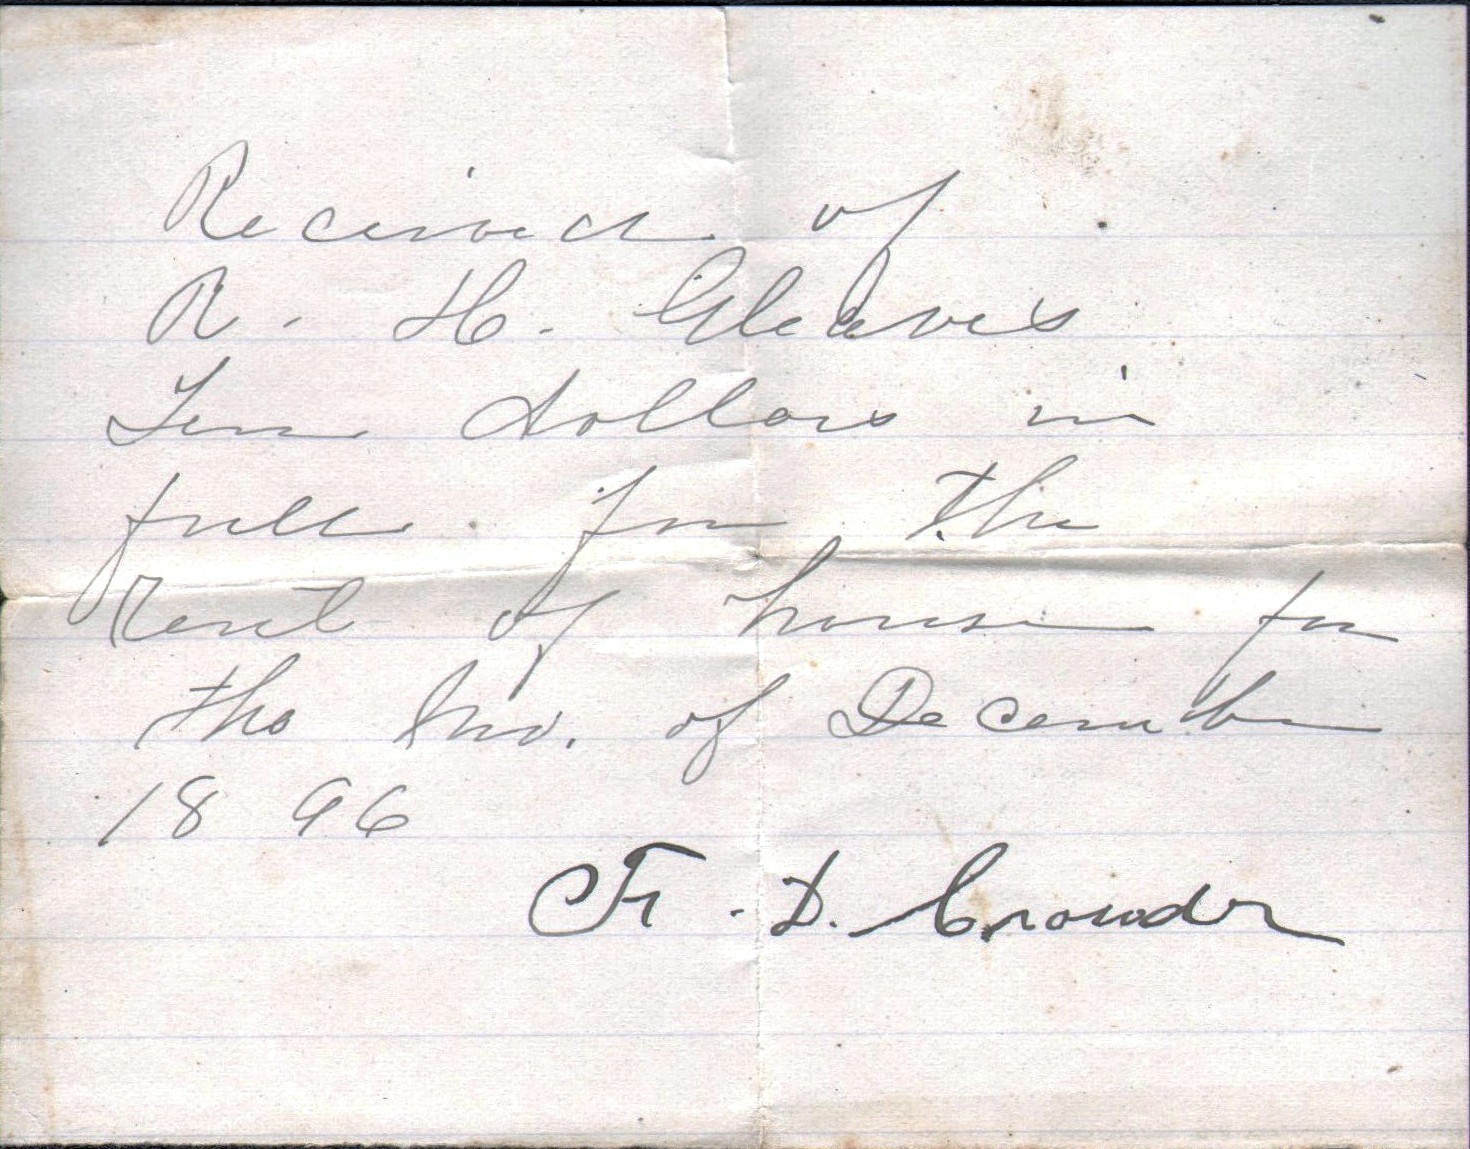 Received of
R. H. Gleaves
Ten dollars in
full for the
Rent of house for
the Mo. of December
1896
F. D. Crowder